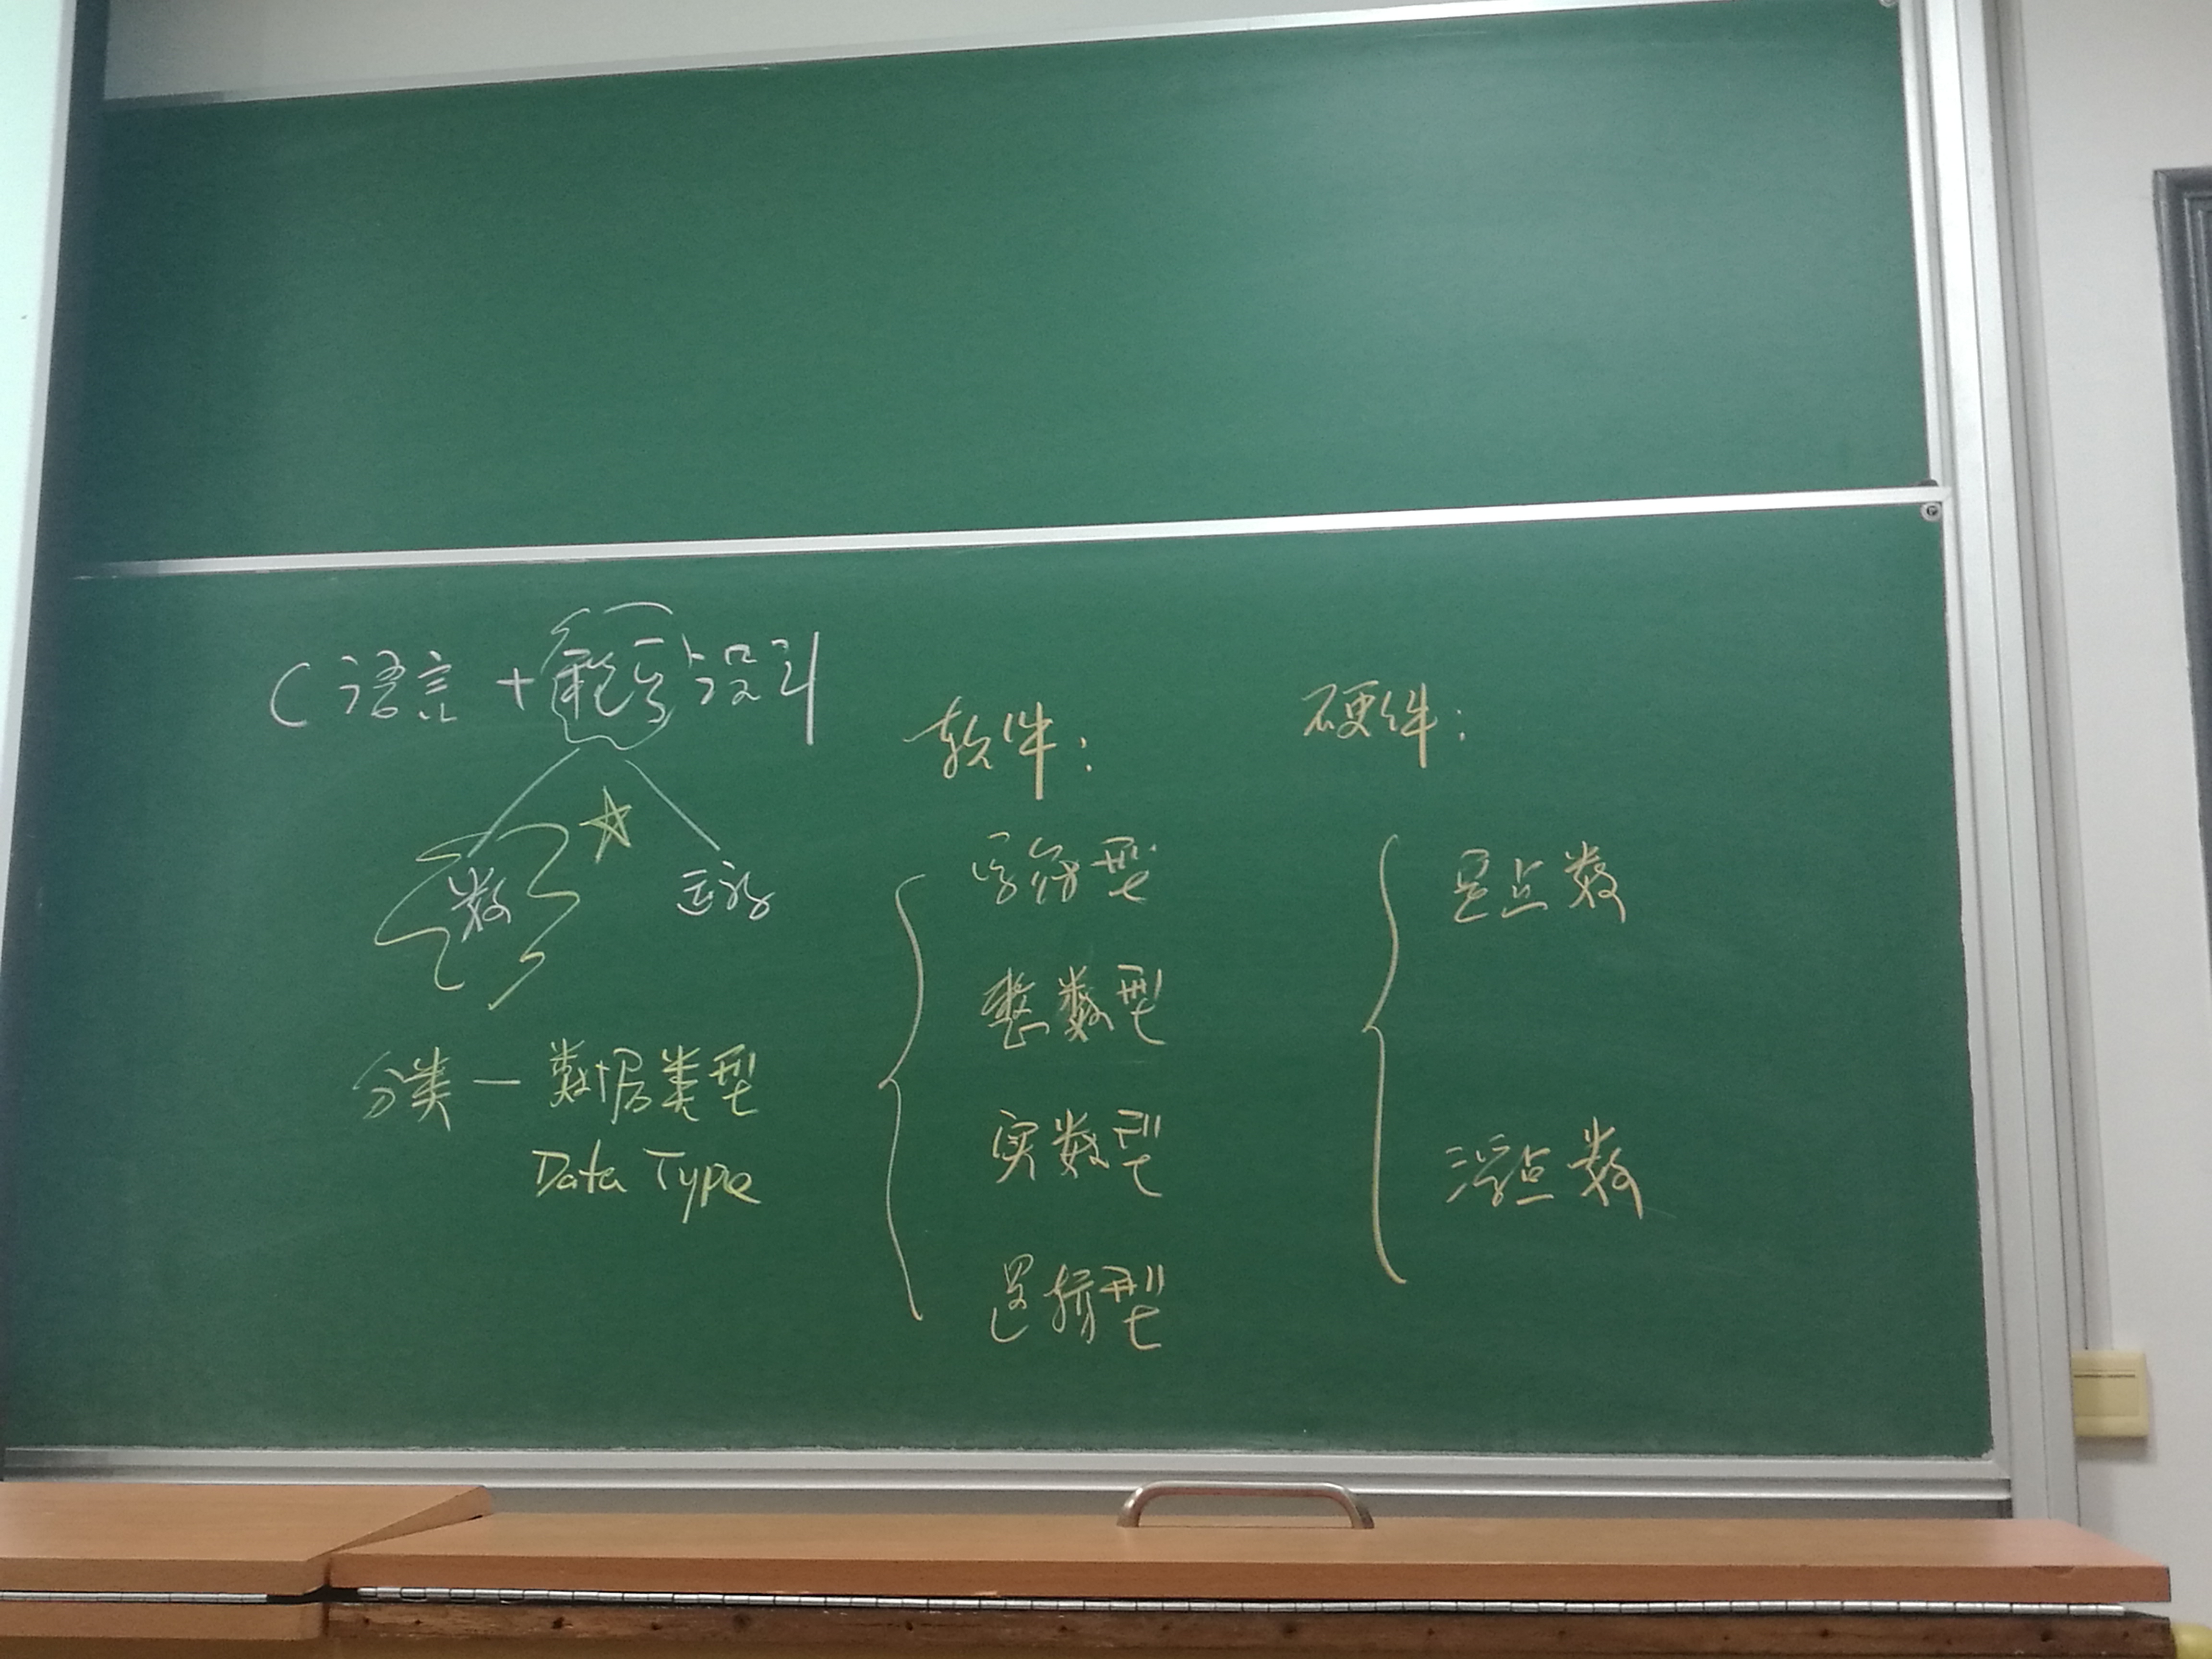 C 语言 + 程序设计
数
运算
分类 — 数据类型
Data Type
软件：
字符型
整数型
实数型
逻辑型
硬件：
定点数
浮点数